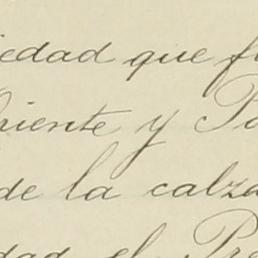 iedad que f
Oriente y Po
de la calza
dad el Pre